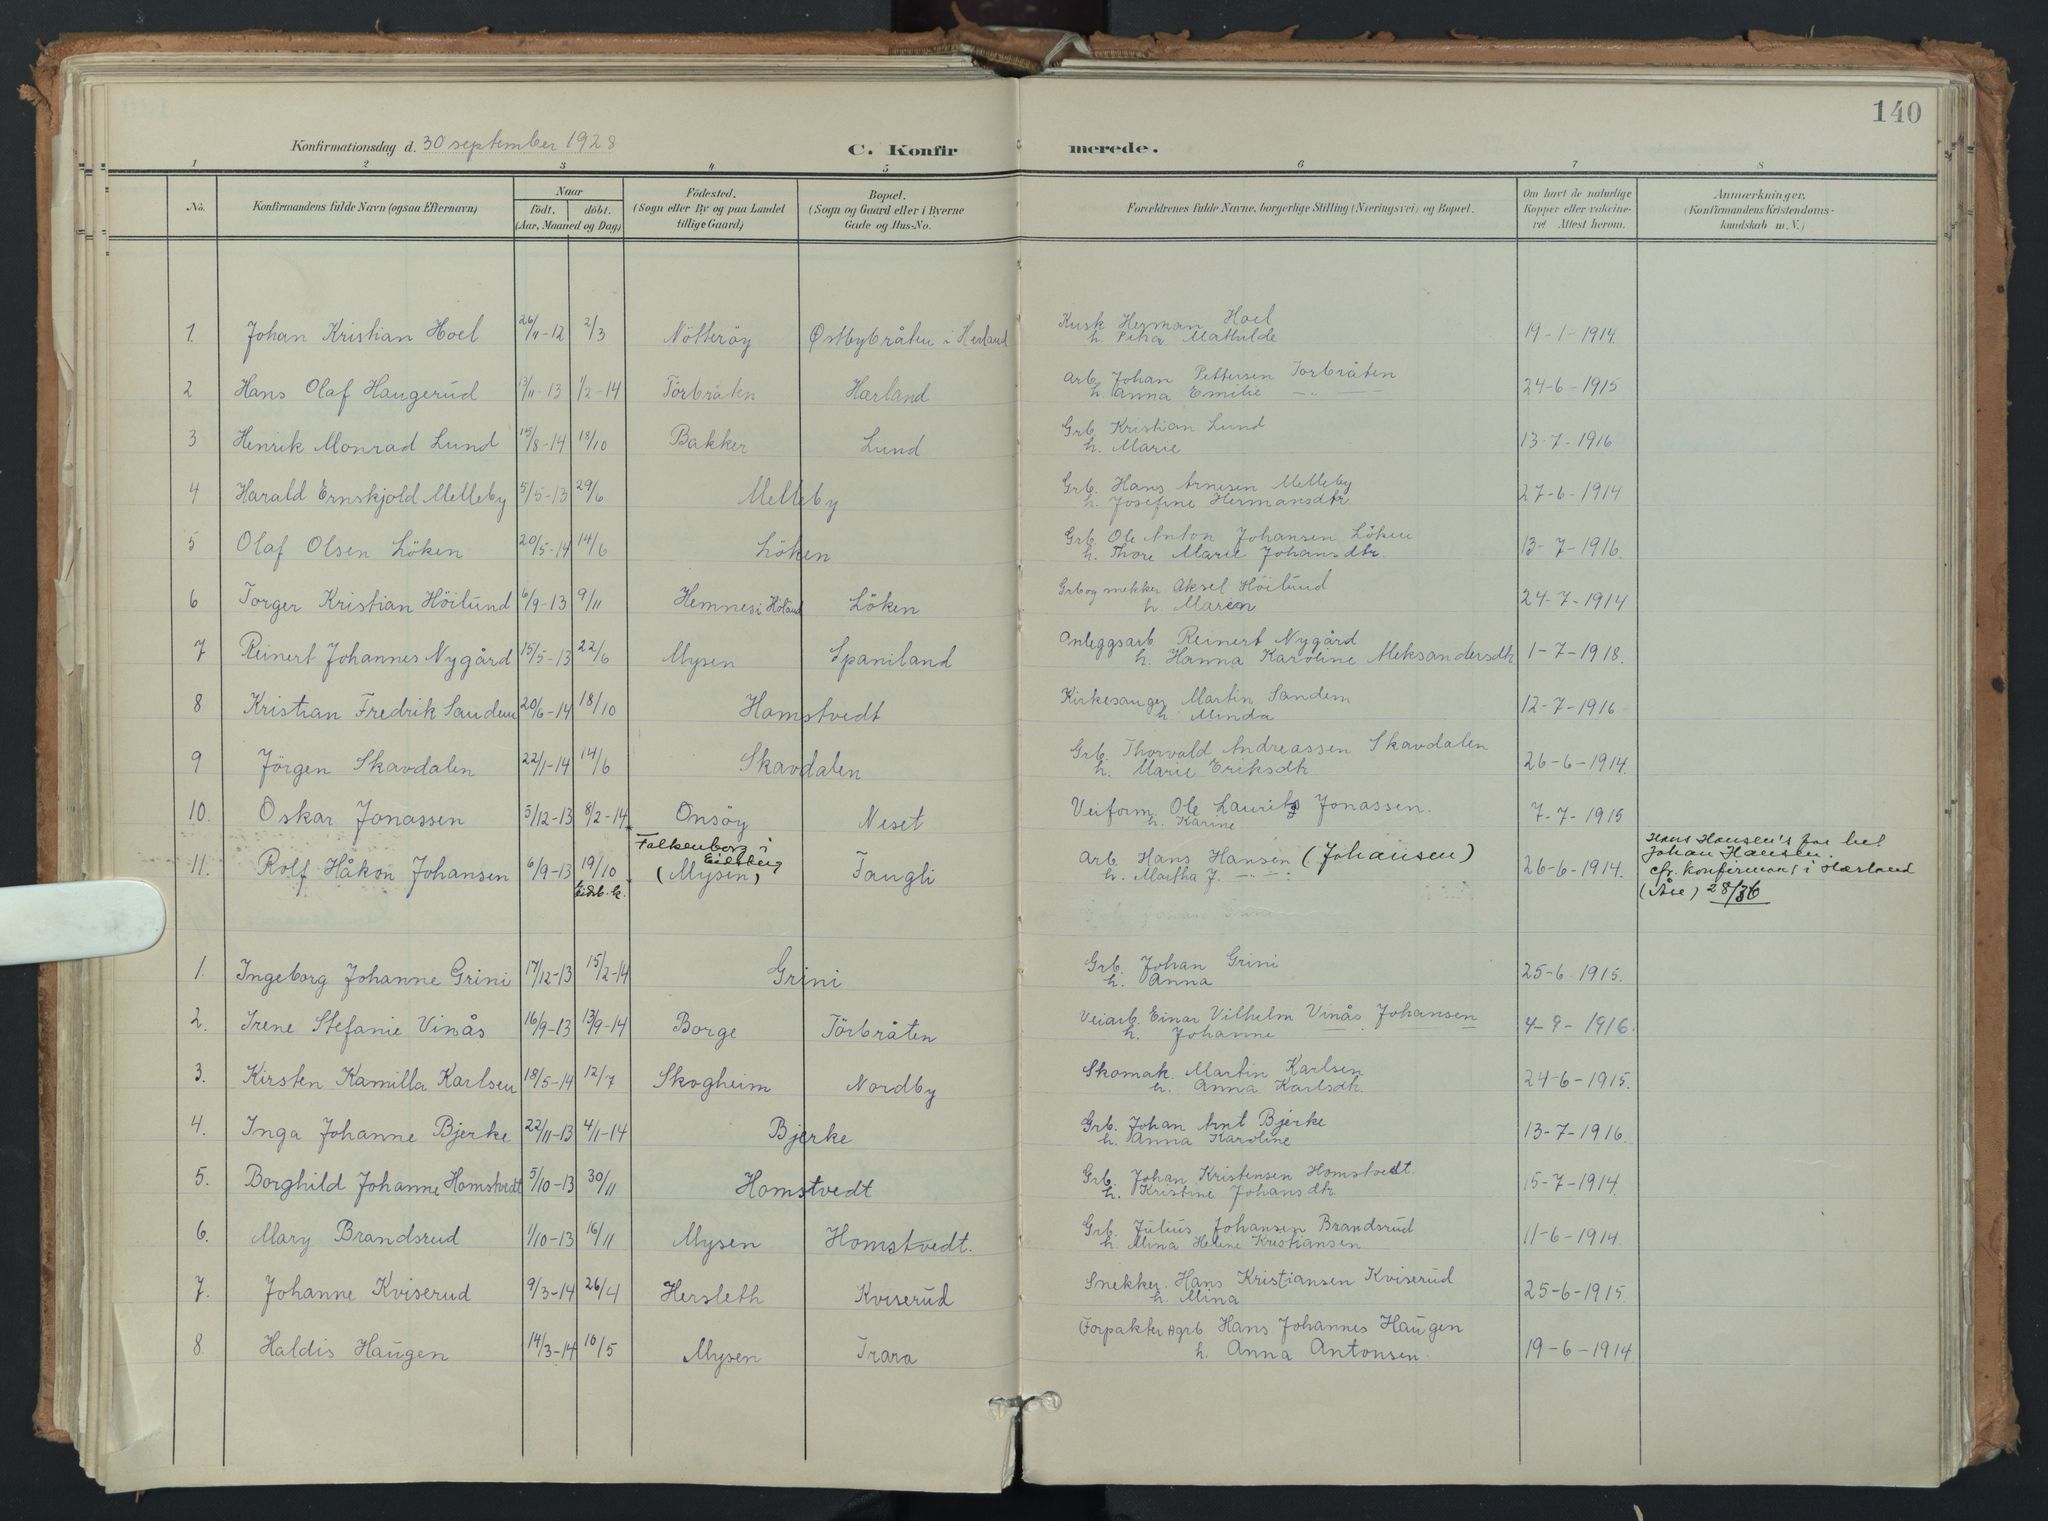 140
Konfirmationsdag d. 30 september 1928
C. Konfirmerede.
1 2 3 4 5 6 7 8
No.
Konfirmandens fulde Navn (ogsaa Efternavn)
Naar
født. døbt.
(Aar, Maaned og Dag)
Fødested.
(Sogn eller By og paa Landet
tillige Gaard)
Bopæl.
(Sogn og Gaard eller i Byerne
Gade og Hus-No.
Forældrenes fulde Navne, borgerlige Stilling (Næringsvei) og Bopæl.
Om havt de naturlige
Kopper eller vakcine-
ret Attest herom.
Anmærkninger.
(Konfirmandens Kristendoms-
kundskab m. V.)
1. Johan Kristian Hoel 26/11-12 2/3 Nötteröy Østbybråten i Herland Kusk Herman Hoel 19-1-1914.
h. Petra Mathilde
2 Hans Olaf Haugerud 13/11-13 1/2-14 Törbråten Hærland Arb. Johan Pettersen Torbråten 24-6-1915
h. Anna Emilie —"—
3 Henrik Monrad Lund 15/8-14 18/10 Bakker Lund Grb. Kristian Lund 13-7-1916
h. Marie
4 Harald Ernskjold Melleby 5/5-13 29/6 Melleby Grb. Hans Arnesen Melleby 27-6-1914
h. Josefine Hermansdtr
5 Olaf Olsen Löken 20/5-14 14/6 Löken Grb. Ole Anton Johansen Löken 13-7-1916.
h. Thore Marie Johansdtr.
6 Torger Kristian Höilund 6/9-13 9/11 Hemnes i Höland Löken Grb og snekker Aksel Höilund 24-7-1914
h. Maren
7 Reinert Johannes Nygård 15/5-13 22/6 Mysen Spaniland Anleggsarb. Reinert Nygård 1-7-1918.
h. Hanna Karoline Aleksandersdtr
8 Kristian Fredrik Sandem 20/6-14 18/10 Homstvedt Kirkesanger Martin Sandem 12-7-1916
h. Minda
9 Jörgen Skavdalen 22/1-14 14/6 Skavdalen Grb. Thorvald Andreassen Skavdalen 26-6-1914.
h. Marie Eriksdtr.
10. Oskar Jonassen 5/12-13 8/2-14 Onsöy Neset Veiform. Ole Lauritz Jonassen. 7-7-1915
h. Karine
11. Rolf Håkon Johansen 6/9-13 19/10 Eidsb. k. Falkenborg i Eidsberg (Mysen) Taugli Arb. Hans Hansen (Johansen) 26-6-1914.
h. Martha J. —"—
Hans Hansen's far het
Johan Hansen.
cfr. konfermant i Hærland
(Åse) 28/36
1. Ingeborg Johanne Grini 17/12-13 15/2-14 Grini Grb. Johan Grini 25-6-1915.
h. Anna
2. Irene Stefanie Vinås 16/9-13 13/9-14 Borge Törbråten Veiarb. Einar Vilhelm Vinås Johansen 4-9-1916.
h. Johanne
3. Kirsten Kamilla Karlsen 18/5-14 12/7 Skogheim Nordby Skomak. Martin Karlsen 24-6-1915.
h. Anna Karlsdtr.
4. Inga Johanne Bjerke 22/11-13 4/1-14 Bjerke Grb. Johan Arnt Bjerke 13-7-1916.
h. Anna Karoline
5. Borghild Johanne Homstvedt 5/10-13 30/11 Homstvedt Grb. Johan Kristensen Homstvedt. 15-7-1914.
h. Kristine Johansdtr.
6. Mary Brandsrud 1/10-13 16/11 Mysen Homstvedt. Grb. Julius Johansen Brandsrud 11-6-1914.
h. Mina Helene Kristiansen
7. Johanne Kviserud 9/3-14 26/4 Hersleth Kviserud Snekker. Hans Kristiansen Kviserud 25-6-1915.
h. Mina
8. Haldis Haugen 14/3-14 10/5 Mysen Trara Forpakter Hans Johannes Haugen 19-6-1914
h. Anna Antonsen.